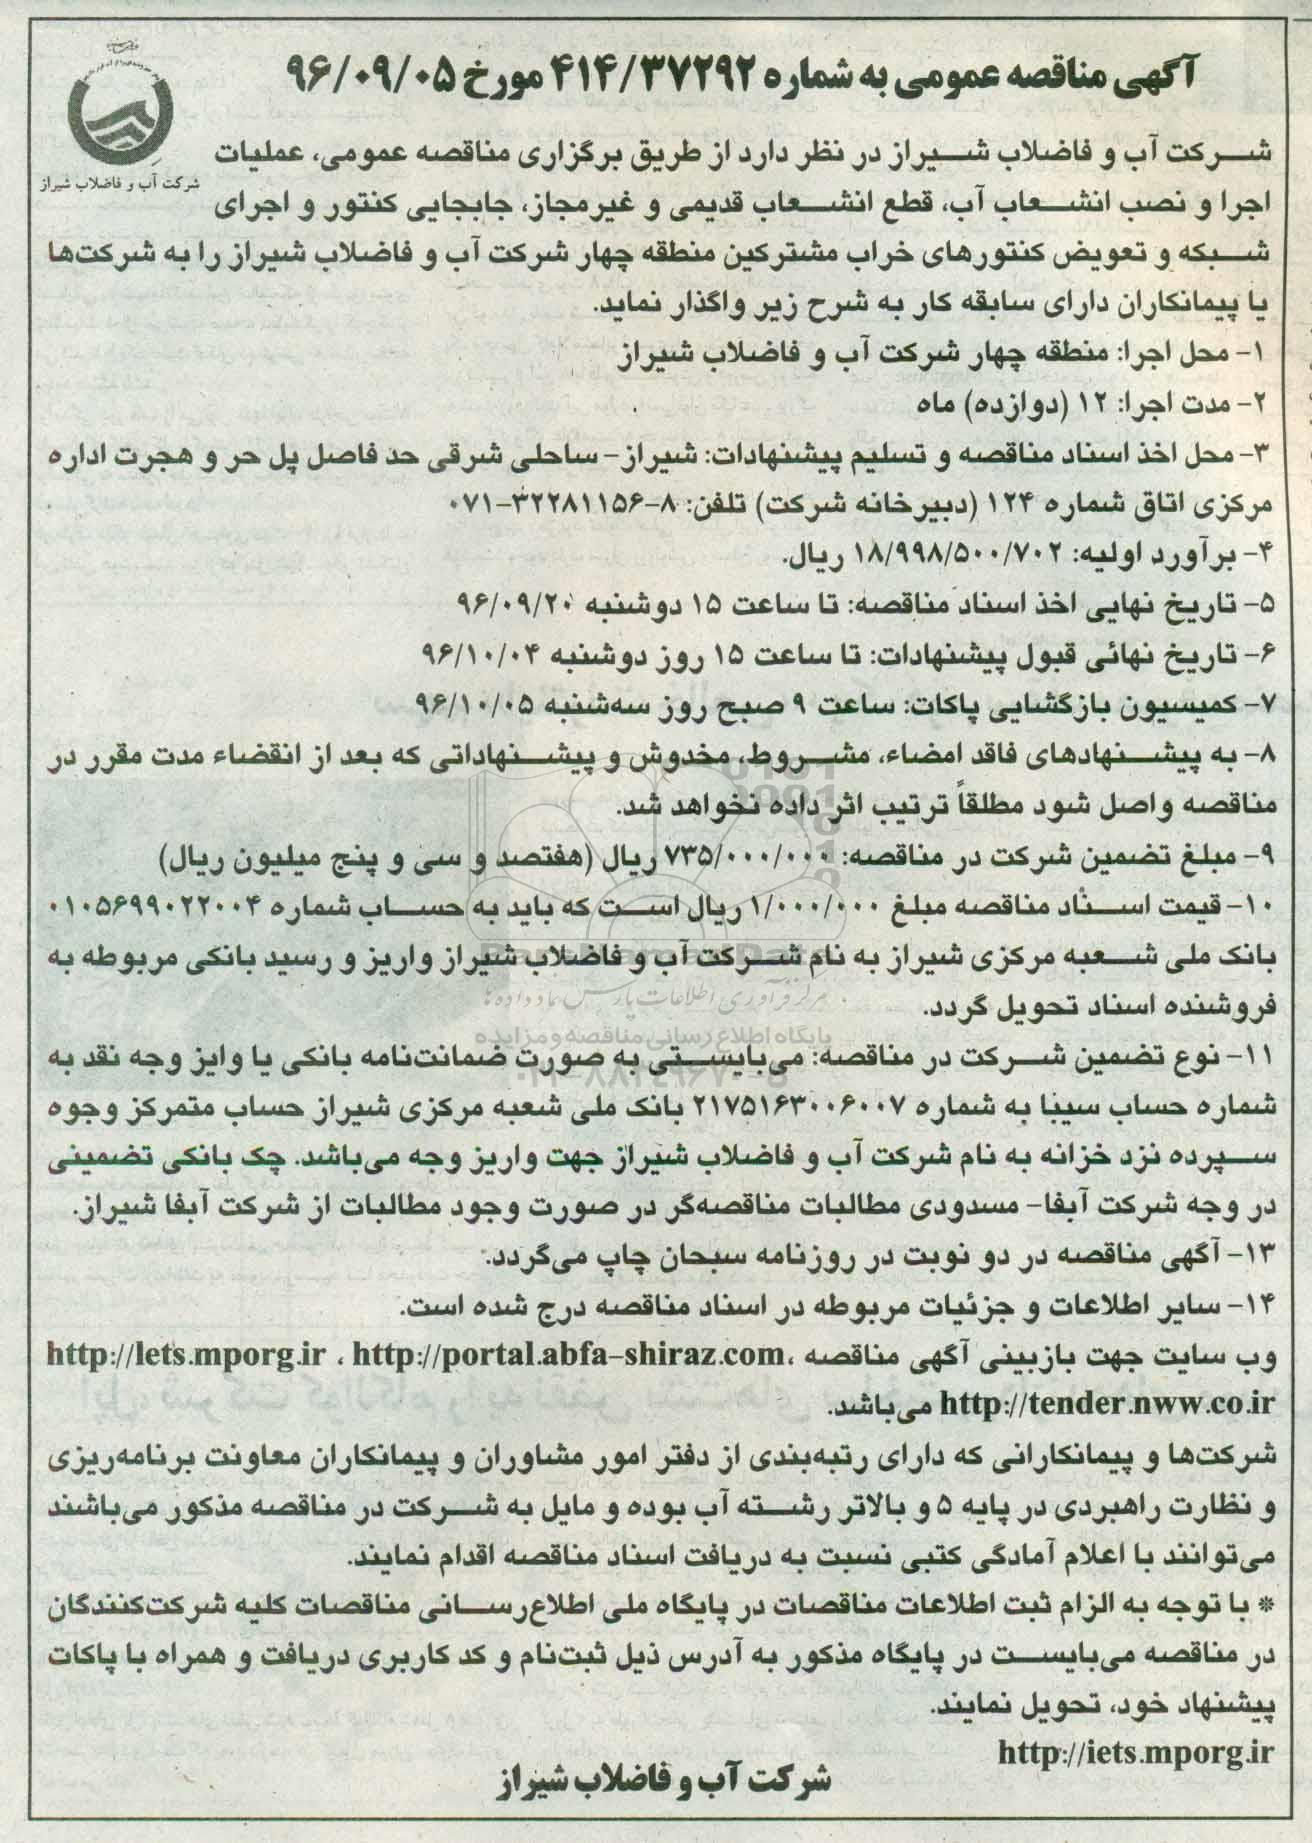 آگهی مناقصه عمومی به شماره ۴۱۴/۳۷۲۹۲ مورخ ۹۶/۰۹/۰۵
شرکت آب و فاضلاب شیراز
شرکت آب و فاضلاب شیراز در نظر دارد از طریق برگزاری مناقصه عمومی، عملیات
اجرا و نصب انشعاب آب، قطع انشعاب قدیمی و غیرمجاز، جابجایی کنتور و اجرای
شبکه و تعویض کنتورهای خراب مشترکین منطقه چهار شرکت آب و فاضلاب شیراز را به شرکت‌ها
یا پیمانکاران دارای سابقه کار به شرح زیر واگذار نماید.
۱- محل اجرا: منطقه چهار شرکت آب و فاضلاب شیراز
۲- مدت اجرا: ۱۲ (دوازده) ماه
۳- محل اخذ اسناد مناقصه و تسلیم پیشنهادات: شیراز- ساحلی شرقی حد فاصل پل حر و هجرت اداره
مرکزی اتاق شماره ۱۲۴ (دبیرخانه شرکت) تلفن: ۸-۳۲۲۸۱۱۵۶-۰۷۱
۴- برآورد اولیه: ۱۸/۹۹۸/۵۰۰/۷۰۲ ریال.
۵- تاریخ نهایی اخذ اسناد مناقصه: تا ساعت ۱۵ دوشنبه ۹۶/۰۹/۲۰
۶- تاریخ نهائی قبول پیشنهادات: تا ساعت ۱۵ روز دوشنبه ۹۶/۱۰/۰۴
۷- کمیسیون بازگشایی پاکات: ساعت ۹ صبح روز سه‌شنبه ۹۶/۱۰/۰۵
۸- به پیشنهادهای فاقد امضاء، مشروط، مخدوش و پیشنهاداتی که بعد از انقضاء مدت مقرر در
مناقصه واصل شود مطلقاً ترتیب اثر داده نخواهد شد.
۹- مبلغ تضمین شرکت در مناقصه: ۷۳۵/۰۰۰/۰۰۰ ریال (هفتصد و سی و پنج میلیون ریال)
۱۰- قیمت اسناد مناقصه مبلغ ۱/۰۰۰/۰۰۰ ریال است که باید به حساب شماره ۰۱۰۵۶۹۹۰۲۲۰۰۴
بانک ملی شعبه مرکزی شیراز به نام شرکت آب و فاضلاب شیراز واریز و رسید بانکی مربوطه به
فروشنده اسناد تحویل گردد.
مرکز فرآوری اطلاعات پارس نماد داده‌ها
پایگاه اطلاع رسانی مناقصه و مزایده
۱۱- نوع تضمین شرکت در مناقصه: می‌بایستی به صورت ضمانت‌نامه بانکی یا وایز وجه نقد به
شماره حساب سیبا به شماره ۲۱۷۵۱۶۳۰۰۶۰۰۷ بانک ملی شعبه مرکزی شیراز حساب متمرکز وجوه
سپرده نزد خزانه به نام شرکت آب و فاضلاب شیراز جهت واریز وجه می‌باشد. چک بانکی تضمینی
در وجه شرکت آبفا- مسدودی مطالبات مناقصه‌گر در صورت وجود مطالبات از شرکت آبفا شیراز.
۱۳- آگهی مناقصه در دو نوبت در روزنامه سبحان چاپ می‌گردد.
۱۴- سایر اطلاعات و جزئیات مربوطه در اسناد مناقصه درج شده است.
وب سایت جهت بازبینی آگهی مناقصه ،http://portal.abfa-shiraz.com ، http://lets.mporg.ir
http://tender.nww.co.ir می‌باشد.
شرکت‌ها و پیمانکارانی که دارای رتبه‌بندی از دفتر امور مشاوران و پیمانکاران معاونت برنامه‌ریزی
و نظارت راهبردی در پایه ۵ و بالاتر رشته آب بوده و مایل به شرکت در مناقصه مذکور می‌باشند
می‌توانند با اعلام آمادگی کتبی نسبت به دریافت اسناد مناقصه اقدام نمایند.
* با توجه به الزام ثبت اطلاعات مناقصات در پایگاه ملی اطلاع‌رسانی مناقصات کلیه شرکت‌کنندگان
در مناقصه می‌بایست در پایگاه مذکور به آدرس ذیل ثبت‌نام و کد کاربری دریافت و همراه با پاکات
پیشنهاد خود، تحویل نمایند.
http://iets.mporg.ir
شرکت آب و فاضلاب شیراز